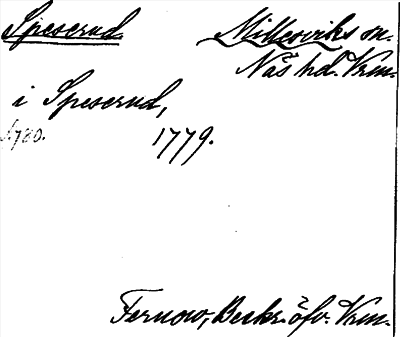 Speserud Millesviks sn.
Näs hd. Vrm.
i Speserud,
s.780. 1779.
Fernow, Beskr. öfv. Vrm.